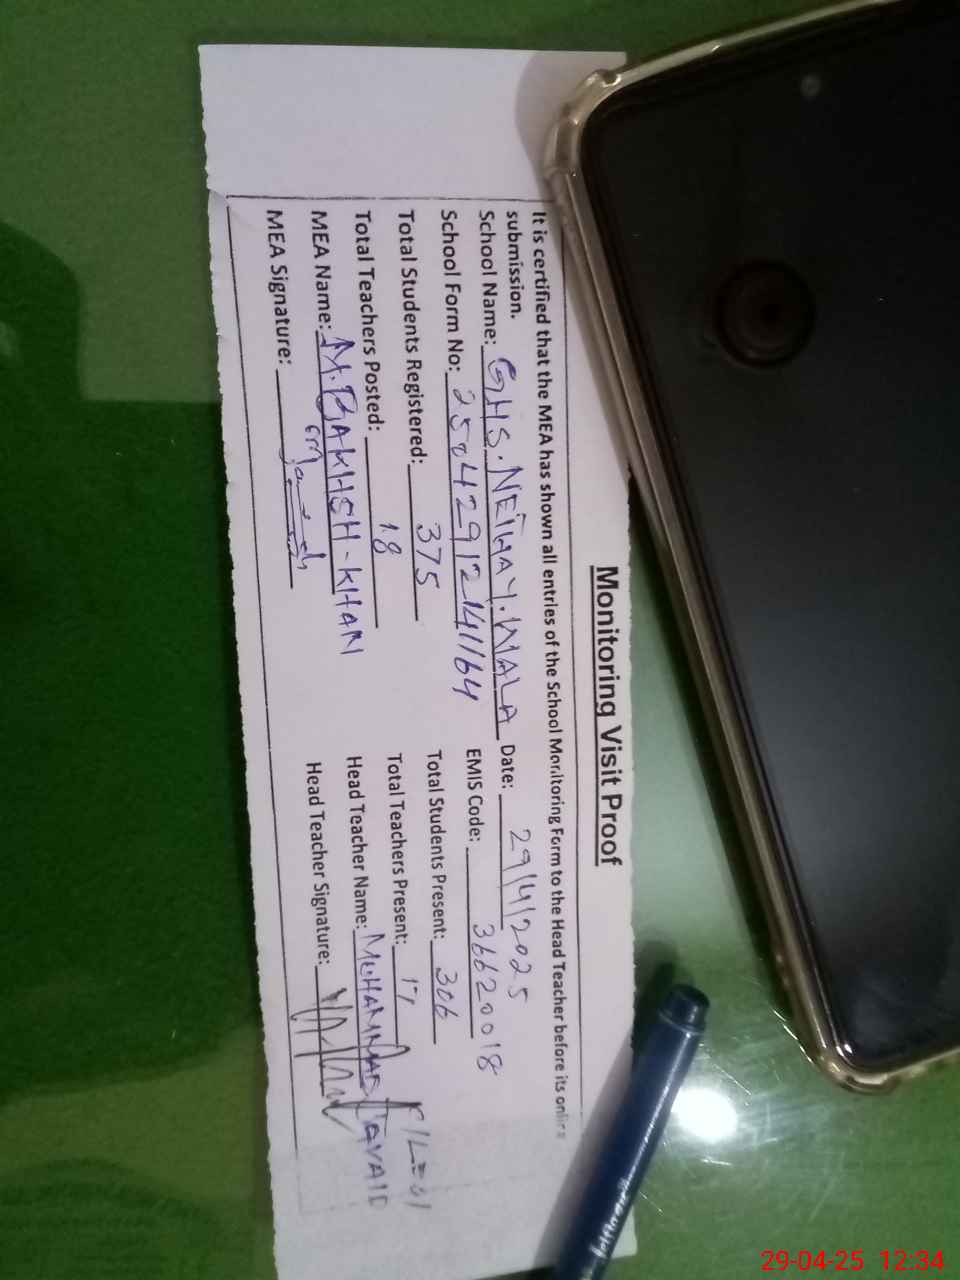 Monitoring Visit Proof
It is certified that the MEA has shown all entries of the School Monitoring Form to the Head Teacher before its online
submission.
School Name: GHS. NEIHAY. WALA Date: 29/4/2025
School Form No: 2504291214 1164 EMIS Code: 36620018
Total Students Registered: 375 Total Students Present: 306
Total Teachers Posted: 18 Total Teachers Present: 17
MEA Name: M. BAKHSH - KHAN Head Teacher Name: MUHAMMAD JAVAID
MEA Signature: Head Teacher Signature:
29-04-25 12:34